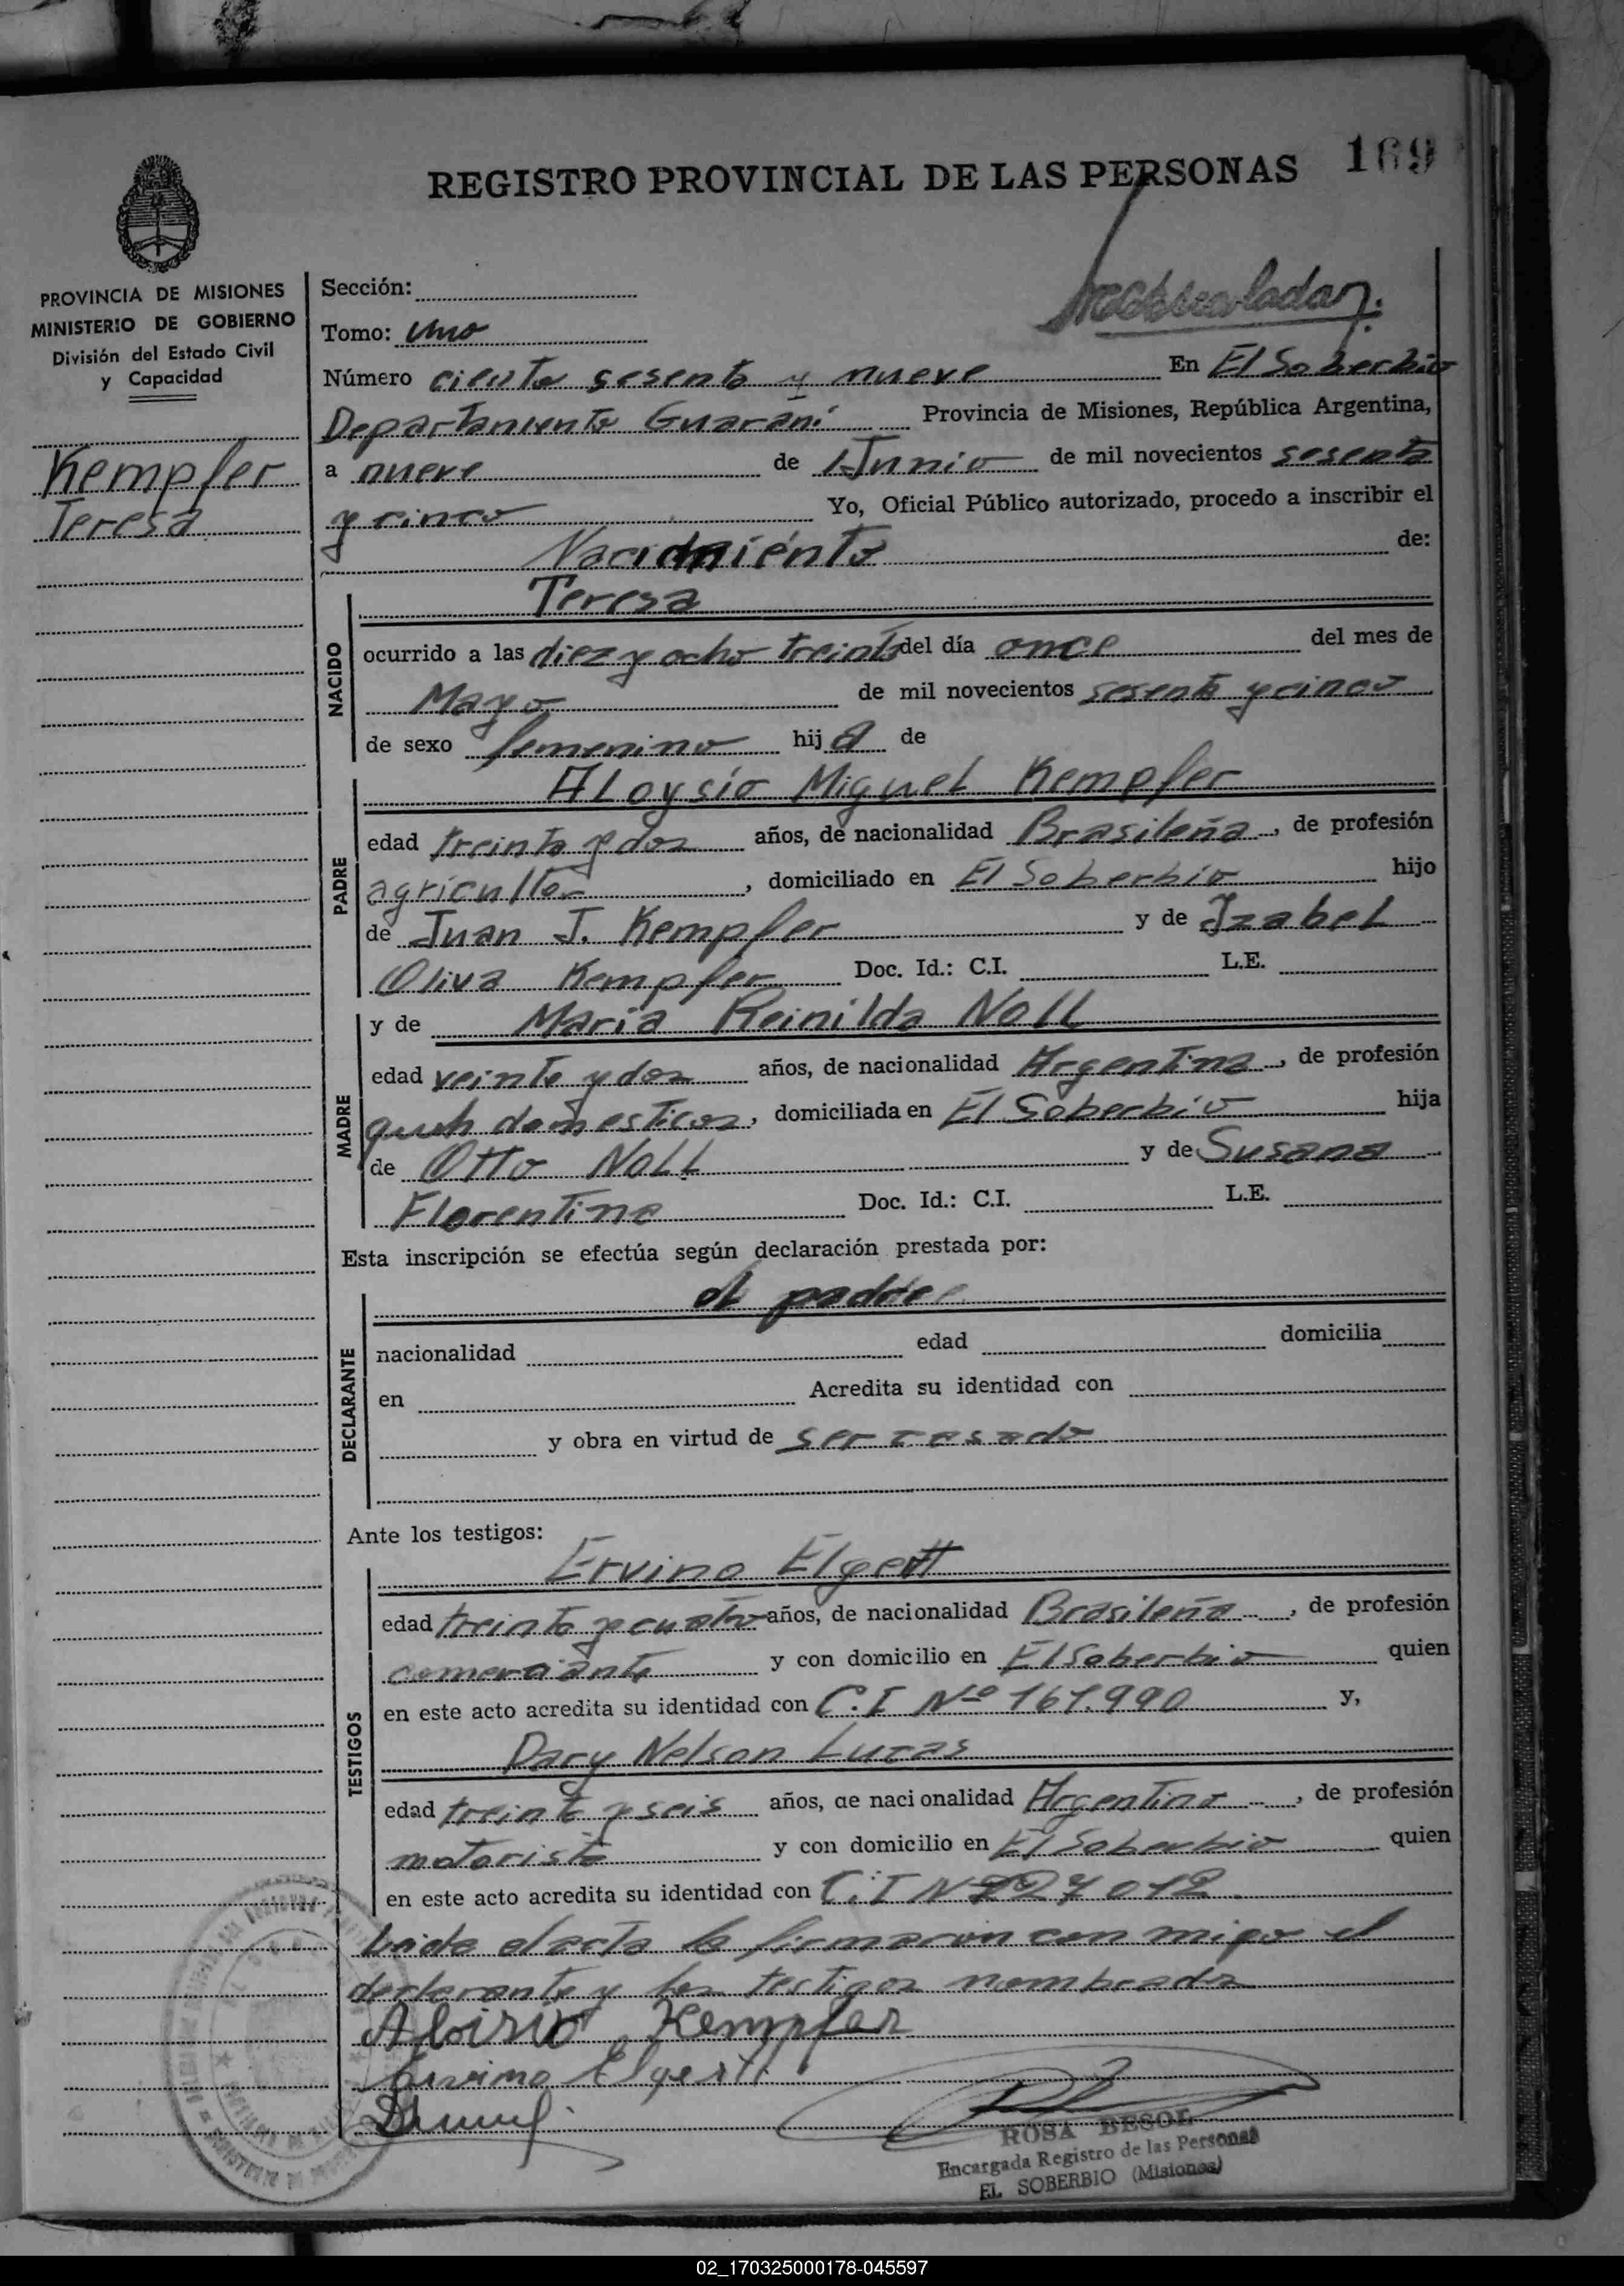 169
REGISTRO PROVINCIAL DE LAS PERSONAS
PROVINCIA DE MISIONES
MINISTERIO DE GOBIERNO
División del Estado Civil
y Capacidad
Kempfer
Teresa
Sección:
Tomo: Uno
Número ciento sesenta y nueve En El Soberbio
Departamento Guaraní Provincia de Misiones, República Argentina,
a nueve de Junio de mil novecientos sesenta
y cinco Yo, Oficial Público autorizado, procedo a inscribir el
Nacimiento de:
NACIDO
Teresa
ocurrido a las diez y ocho treinta del día once del mes de
Mayo de mil novecientos sesenta y cinco
de sexo femenino hija de
PADRE
Aloysio Miguel Kempfer
edad treinta y dos años, de nacionalidad Brasileña, de profesión
agricultor, domiciliado en El Soberbio hijo
de Juan J. Kempfer y de Izabel
Oliva Kempfer Doc. Id.: C.I. L.E.
MADRE
y de Maria Reinilda Noll
edad veinte y dos años, de nacionalidad Argentina, de profesión
domesticos, domiciliada en El Soberbio hija
de Otto Noll y de Susana
Florentino Doc. Id.: C.I. L.E.
Esta inscripción se efectúa según declaración prestada por:
DECLARANTE
el padre
nacionalidad edad domicilia
en Acredita su identidad con
y obra en virtud de ser casado
Ante los testigos:
TESTIGOS
Ervino Elgert
edad treinta y cuatro años, de nacionalidad Brasileña, de profesión
comerciante y con domicilio en El Soberbio quien
en este acto acredita su identidad con C.I Nº 161.990 y,
Dary Nelson Lucas
edad treinta y seis años, de nacionalidad Argentino, de profesión
motorista y con domicilio en El Soberbio quien
en este acto acredita su identidad con C.I N 227 012
Leida el acta la firmaron con migo el
declarante y los testigos nombrados
Aloisio Kempfer
Ervino Elgert
ROSA BESOL
Encargada Registro de las Personas
EL SOBERBIO (Misiones)
02_170325000178-045597